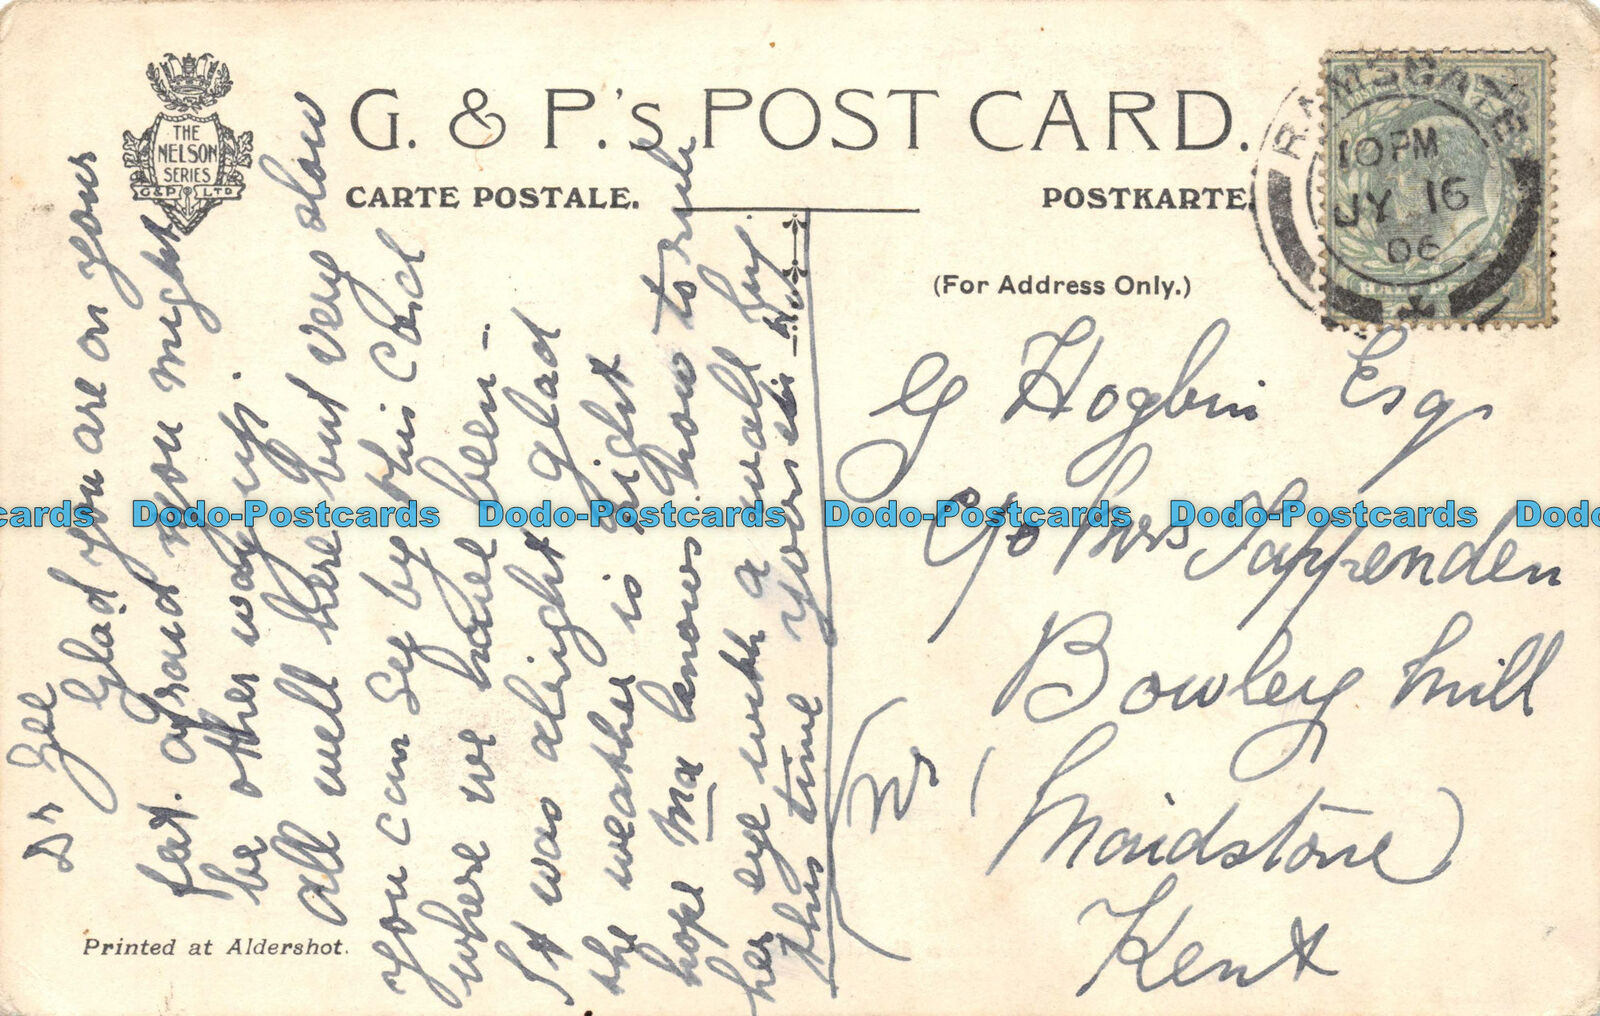 THE
NELSON
SERIES
G&P LTD
G. & P.'s POST CARD.
CARTE POSTALE.
POSTKARTE.
(For Address Only.)
RAMSGATE
10 PM
JY 16
06
HALF PENNY
G Hogbin Esq
C/o Mrs Tappenden
Bowley Mill
Nr (Maidstone)
Kent
Dr Gee
Glad you are on your
feet. afraid you might
be other way up.
all well here but very slow
you can see by this Card
where we have been -
It was alright glad
the weather is right
hope Ma knows how to rule
her eye with a wall
this time yours
Printed at Aldershot.
Dodo-Postcards Dodo-Postcards Dodo-Postcards Dodo-Postcards